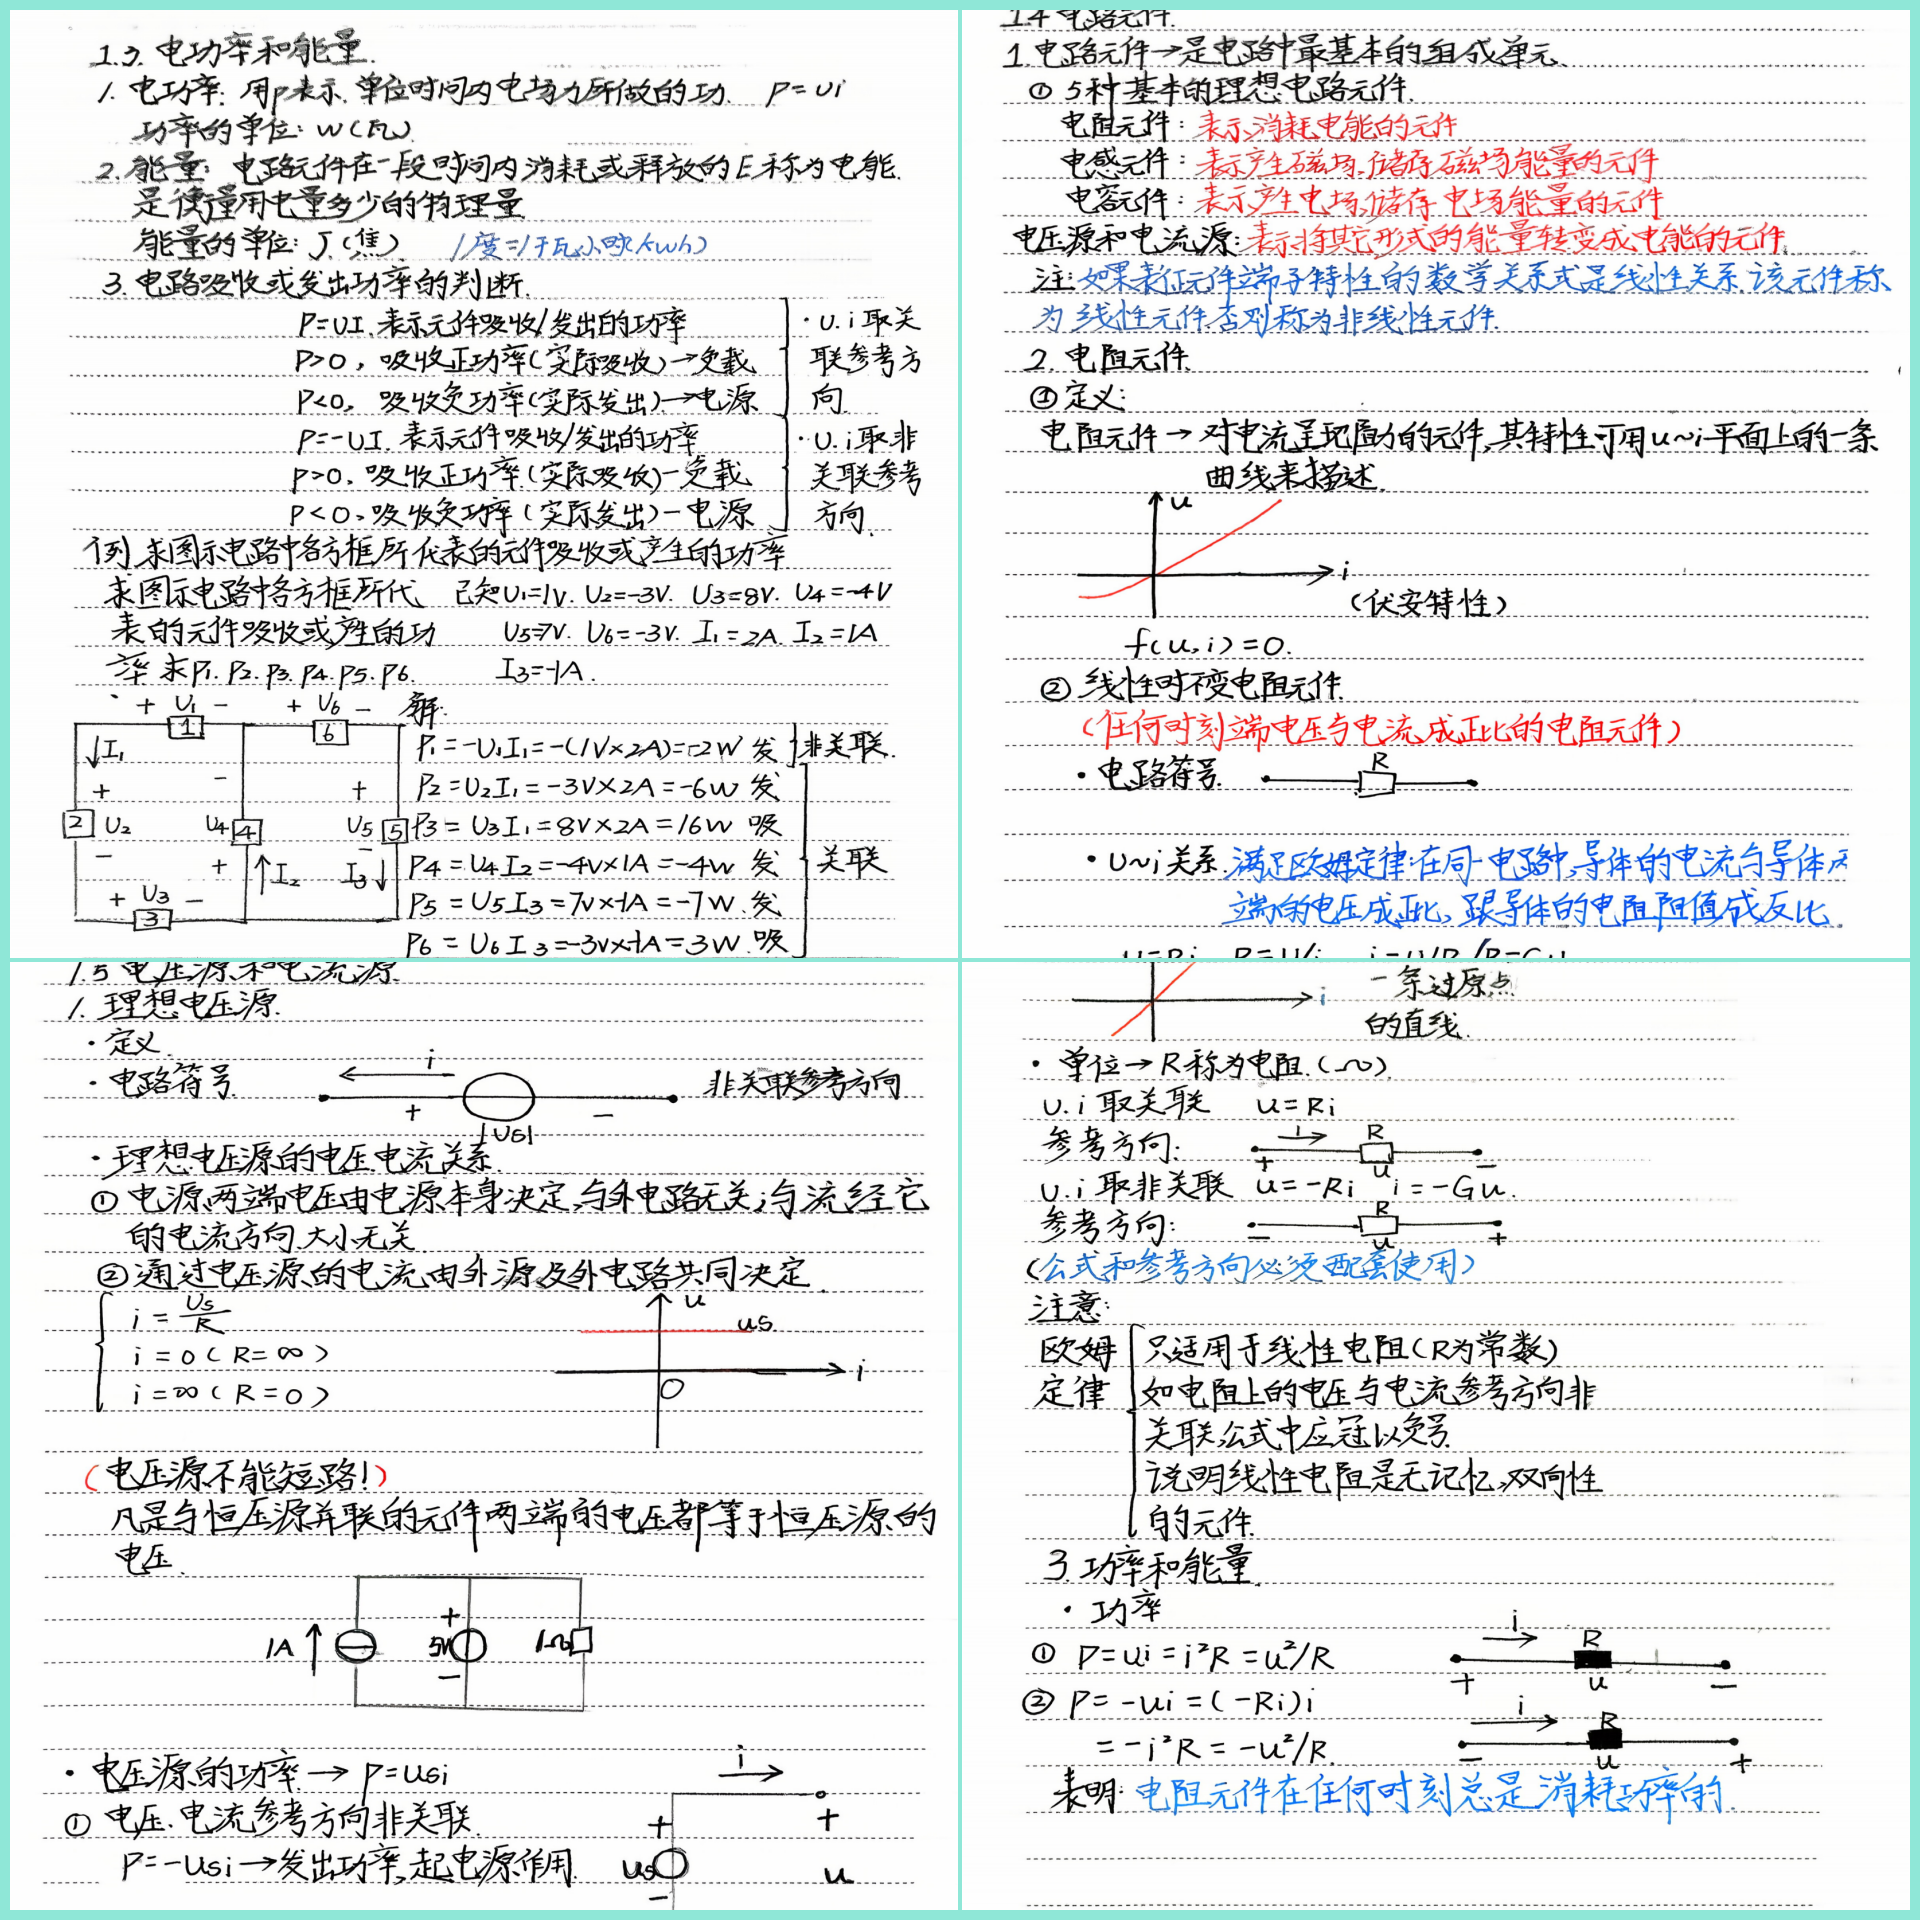 1.3. 电功率和能量.
1. 电功率: 用p表示. 单位时间内电场力所做的功. P=ui
功率的单位: W(瓦)
2. 能量: 电路元件在一段时间内消耗或释放的E称为电能.
是衡量用电量多少的物理量
能量的单位: J.(焦) 1度=1千瓦小时(kwh)
3. 电路吸收或发出功率的判断.
P=UI. 表示元件吸收/发出的功率
P>0, 吸收正功率(实际吸收)→负载
P<0, 吸收负功率(实际发出)→电源
·U.i取关
联参考方
向
P=-UI. 表示元件吸收/发出的功率
P>0. 吸收正功率.(实际吸收)-负载
P<0. 吸收负功率(实际发出)-电源
·U.i取非
关联参考
方向.
例 求图示电路中各方框所代表的元件吸收或产生的功率
求图示电路中各方框所代
表的元件吸收或产生的功
率 求P1. P2. P3. P4. P5. P6.
已知U1=1V. U2=-3V. U3=8V. U4=-4V
U5=7V. U6=-3V. I1=2A. I2=1A
I3=-1A.
+ U1 - + U6 -
1 6
I1
+ - +
2 U2 U4 4 U5 5
- + -
I2 I3
+ U3 -
3
解:
P1=-U1I1=-(1V×2A)=-2W 发 非关联.
P2=U2I1=-3V×2A=-6W 发
P3=U3I1=8V×2A=16W 吸
P4=U4I2=-4V×1A=-4W 发 关联
P5=U5I3=7V×-1A=-7W. 发
P6=U6I3=-3V×-1A=3W. 吸
1.4 电路元件.
1. 电路元件→是电路中最基本的组成单元.
① 5种基本的理想电路元件.
电阻元件: 表示消耗电能的元件
电感元件: 表示产生磁场,储存磁场能量的元件
电容元件: 表示产生电场,储存电场能量的元件
电压源和电流源: 表示将其它形式的能量转变成电能的元件.
注: 如果表征元件端子特性的数学关系式是线性关系.该元件称
为线性元件.否则称为非线性元件.
2. 电阻元件.
①定义:
电阻元件→对电流呈现阻力的元件,其特性可用u~i平面上的一条
曲线来描述.
u
i
(伏安特性)
f(u,i)=0.
② 线性时不变电阻元件.
(任何时刻端电压与电流成正比的电阻元件)
·电路符号. R
·U~i关系. 满足欧姆定律:在同一电路中,导体的电流与导体两
端的电压成正比, 跟导体的电阻阻值成反比.
u=Ri R=U/i i=U/R/R=Gu
1.5 电压源和电流源.
1. 理想电压源.
·定义.
·电路符号. i 非关联参考方向
+ -
|US|
·理想电压源的电压电流关系.
① 电源两端电压由电源本身决定,与外电路无关;与流经它
的电流方向.大小无关.
② 通过电压源的电流由外源及外电路共同决定.
i=Us/R
i=0(R=∞)
i=∞(R=0)
u
us.
i
O
(电压源不能短路!)
凡是与恒压源并联的元件两端的电压都等于恒压源的
电压.
+
1A 5V 1Ω
-
·电压源的功率→P=usi
① 电压.电流参考方向非关联.
P=-usi→发出功率,起电源作用.
i
+ +
us u
-
i 一条过原点
的直线.
·单位→R称为电阻.(Ω)
U.i取关联 u=Ri
参考方向: i R
+ u -
U.i取非关联 u=-Ri i=-Gu.
参考方向: R
- u +
(公式和参考方向必须配套使用)
注意:
欧姆
定律
只适用于线性电阻(R为常数)
如电阻上的电压与电流参考方向非
关联,公式中应冠以负号.
说明线性电阻是无记忆,双向性
的元件.
3. 功率和能量.
·功率
① P=ui=i²R=u²/R
i R
+ u -
② P=-ui=(-Ri)i
=-i²R=-u²/R.
i R
- u +
表明: 电阻元件在任何时刻总是消耗功率的.